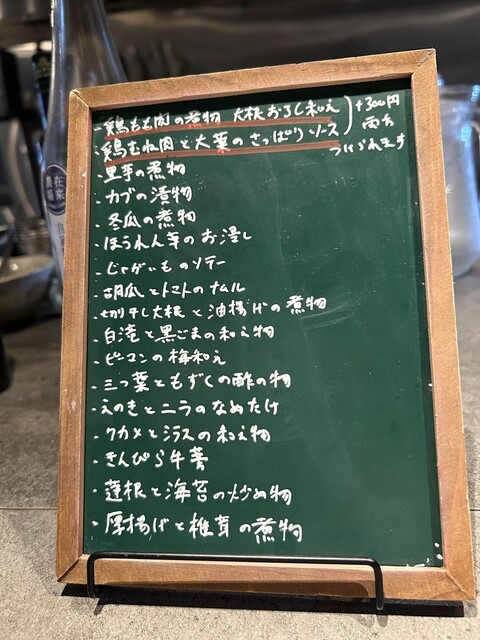 ・鶏もも肉の煮物 大根おろし和え
・鶏むね肉と大葉のさっぱりソース
+300円
両方
つけられます
・里芋の煮物
・カブの漬物
・冬瓜の煮物
・ほうれん草のお浸し
・じゃがいものソテー
・胡瓜とトマトのナムル
・切り干し大根と油揚げの煮物
・白滝と黒ごまの和え物
・ピーマンの梅和え
・三つ葉ともずくの酢の物
・えのきとニラのなめたけ
・ワカメとシラスの和え物
・きんぴら牛蒡
・蓮根と海苔の炒め物
・厚揚げと椎茸の煮物